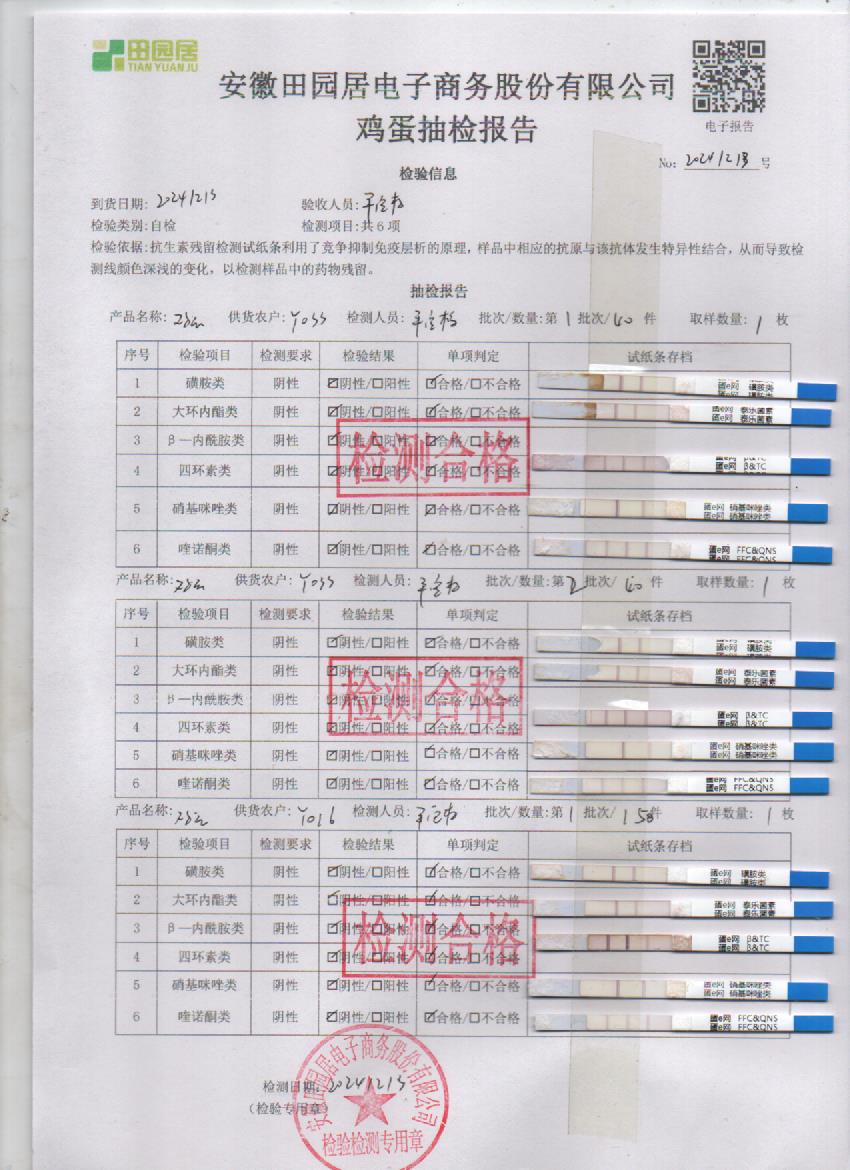 田园居
TIAN YUAN JU
安徽田园居电子商务股份有限公司
鸡蛋抽检报告
电子报告
No: 20241213 号
检验信息
到货日期: 20241213 验收人员:
检验类别:自检 检测项目:共6项
检验依据:抗生素残留检测试纸条利用了竞争抑制免疫层析的原理，样品中相应的抗原与该抗体发生特异性结合，从而导致检
测线颜色深浅的变化，以检测样品中的药物残留。
抽检报告
产品名称: 供货农户: Y033 检测人员: 批次/数量:第 1 批次/ 40 件 取样数量: 1 枚
序号 检验项目 检测要求 检验结果 单项判定 试纸条存档
1 磺胺类 阴性 ☑阴性/☐阳性 ☑合格/☐不合格 蛋e网 磺胺类
2 大环内酯类 阴性 ☑阴性/☐阳性 ☑合格/☐不合格 蛋e网 泰乐菌素
3 β—内酰胺类 阴性 ☑阴性/☐阳性 ☑合格/☐不合格
4 四环素类 阴性 ☑阴性/☐阳性 ☑合格/☐不合格 蛋e网 β&TC
检测合格
5 硝基咪唑类 阴性 ☑阴性/☐阳性 ☑合格/☐不合格 蛋e网 硝基咪唑类
6 喹诺酮类 阴性 ☑阴性/☐阳性 ☑合格/☐不合格 蛋e网 FFC&QNS
产品名称: 供货农户: Y033 检测人员: 批次/数量:第 2 批次/ 40 件 取样数量: 1 枚
序号 检验项目 检测要求 检验结果 单项判定 试纸条存档
1 磺胺类 阴性 ☑阴性/☐阳性 ☑合格/☐不合格 蛋e网 磺胺类
2 大环内酯类 阴性 ☑阴性/☐阳性 ☑合格/☐不合格 蛋e网 泰乐菌素
3 β—内酰胺类 阴性 ☑阴性/☐阳性 ☑合格/☐不合格
检测合格
4 四环素类 阴性 ☑阴性/☐阳性 ☑合格/☐不合格 蛋e网 β&TC
5 硝基咪唑类 阴性 ☑阴性/☐阳性 ☑合格/☐不合格 蛋e网 硝基咪唑类
6 喹诺酮类 阴性 ☑阴性/☐阳性 ☑合格/☐不合格 蛋e网 FFC&QNS
产品名称: 供货农户: Y016 检测人员: 批次/数量:第 1 批次/ 158 件 取样数量: 1 枚
序号 检验项目 检测要求 检验结果 单项判定 试纸条存档
1 磺胺类 阴性 ☑阴性/☐阳性 ☑合格/☐不合格 蛋e网 磺胺类
2 大环内酯类 阴性 ☑阴性/☐阳性 ☑合格/☐不合格 蛋e网 泰乐菌素
3 β—内酰胺类 阴性 ☑阴性/☐阳性 ☑合格/☐不合格 蛋e网 β&TC
检测合格
4 四环素类 阴性 ☑阴性/☐阳性 ☑合格/☐不合格
5 硝基咪唑类 阴性 ☑阴性/☐阳性 ☑合格/☐不合格 蛋e网 硝基咪唑类
6 喹诺酮类 阴性 ☑阴性/☐阳性 ☑合格/☐不合格 蛋e网 FFC&QNS
检测日期: 20241213
（检验专用章）
安徽田园居电子商务股份有限公司
检验检测专用章